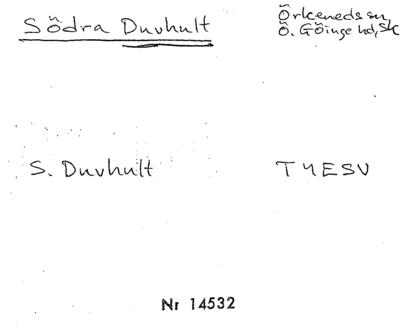 Södra Duvhult
Örkeneds sn,
Ö. Göinge hd, Sk
S. Duvhult
TYESV
Nr 14532